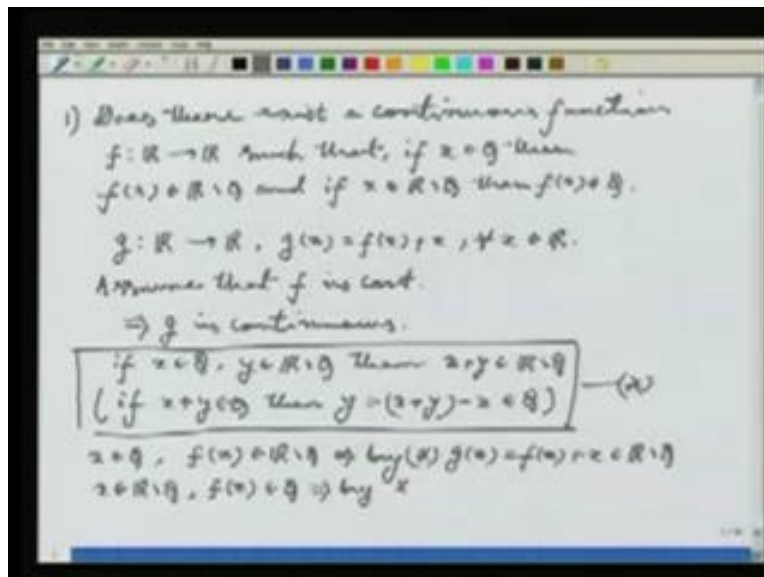 1) Does there exist a continuous function
f : ℝ → ℝ such that, if x ∈ ℚ then
f(x) ∈ ℝ \ ℚ and if x ∈ ℝ \ ℚ then f(x) ∈ ℚ.
g : ℝ → ℝ, g(x) = f(x) + x, ∀ x ∈ ℝ.
Assume that f is cont.
⇒ g is continuous.
if x ∈ ℚ, y ∈ ℝ \ ℚ then x + y ∈ ℝ \ ℚ
( if x + y ∈ ℚ then y = (x + y) - x ∈ ℚ ) — (*)
x ∈ ℚ, f(x) ∈ ℝ \ ℚ ⇒ by (*) g(x) = f(x) + x ∈ ℝ \ ℚ
x ∈ ℝ \ ℚ, f(x) ∈ ℚ ⇒ by *